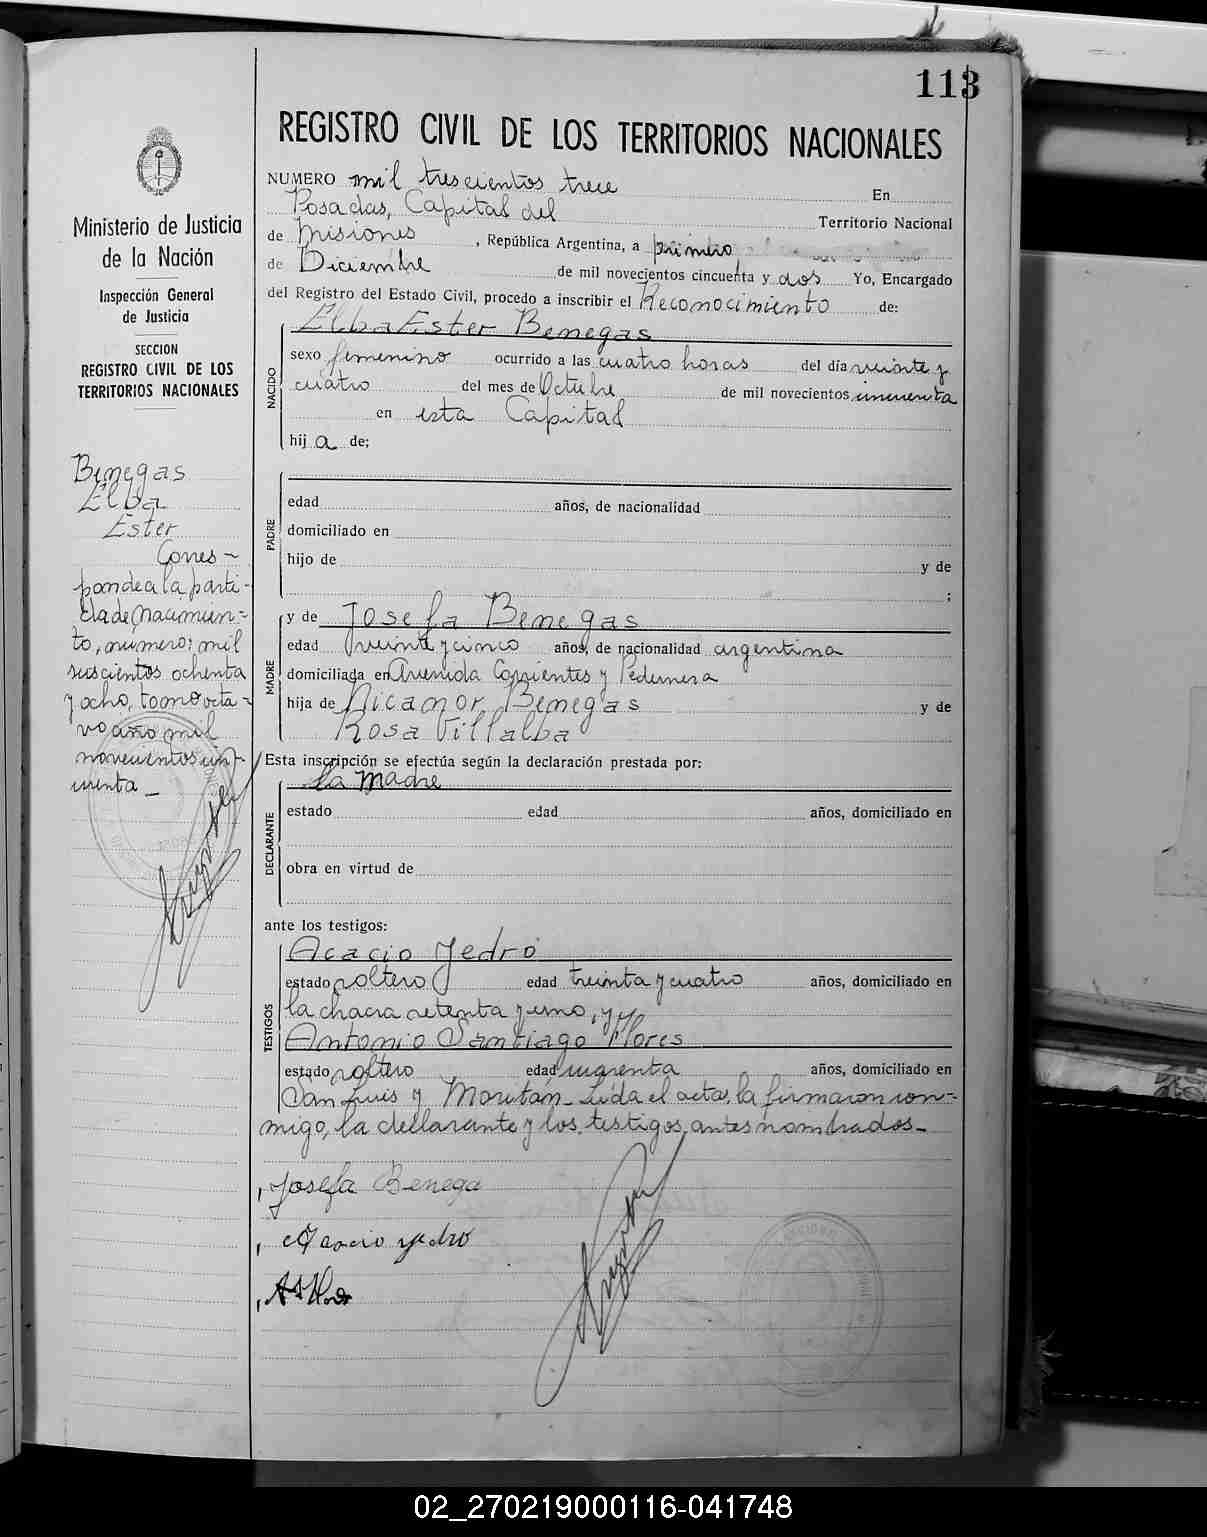 113
REGISTRO CIVIL DE LOS TERRITORIOS NACIONALES
NUMERO mil trescientos trece En
Posadas, Capital del Territorio Nacional
de Misiones, República Argentina, a primero
de Diciembre de mil novecientos cincuenta y dos Yo, Encargado
del Registro del Estado Civil, procedo a inscribir el Reconocimiento de:
NACIDO
Elba Ester Benegas
sexo femenino ocurrido a las cuatro horas del día veinte y
cuatro del mes de Octubre de mil novecientos cincuenta
en esta Capital
hij a de;
PADRE
edad años, de nacionalidad
domiciliado en
hijo de y de
;
MADRE
y de Josefa Benegas
edad veinte y cinco años, de nacionalidad argentina
domiciliada en Avenida Corrientes y Pedernera
hija de Nicanor Benegas y de
Rosa Villalba
Esta inscripción se efectúa según la declaración prestada por:
DECLARANTE
la madre
estado edad años, domiciliado en
obra en virtud de
ante los testigos:
TESTIGOS
Acacio Yedro
estado soltero edad treinta y cuatro años, domiciliado en
la chacra setenta y uno, y
Antonio Santiago Flores
estado soltero edad cuarenta años, domiciliado en
San Luis y Moritán_ Leida el acta, la firmaron con-
migo, la declarante y los testigos antes nombrados_
Josefa Benega
Acacio Yedro
Ministerio de Justicia
de la Nación
Inspección General
de Justicia
SECCION
REGISTRO CIVIL DE LOS
TERRITORIOS NACIONALES
Benegas
Elba
Ester
Corres-
ponde a la parti-
da de Nacimien-
to, número: mil
seiscientos ochenta
y ocho, tomo octa-
vo año mil
novecientos cin-
cuenta_
02_270219000116-041748